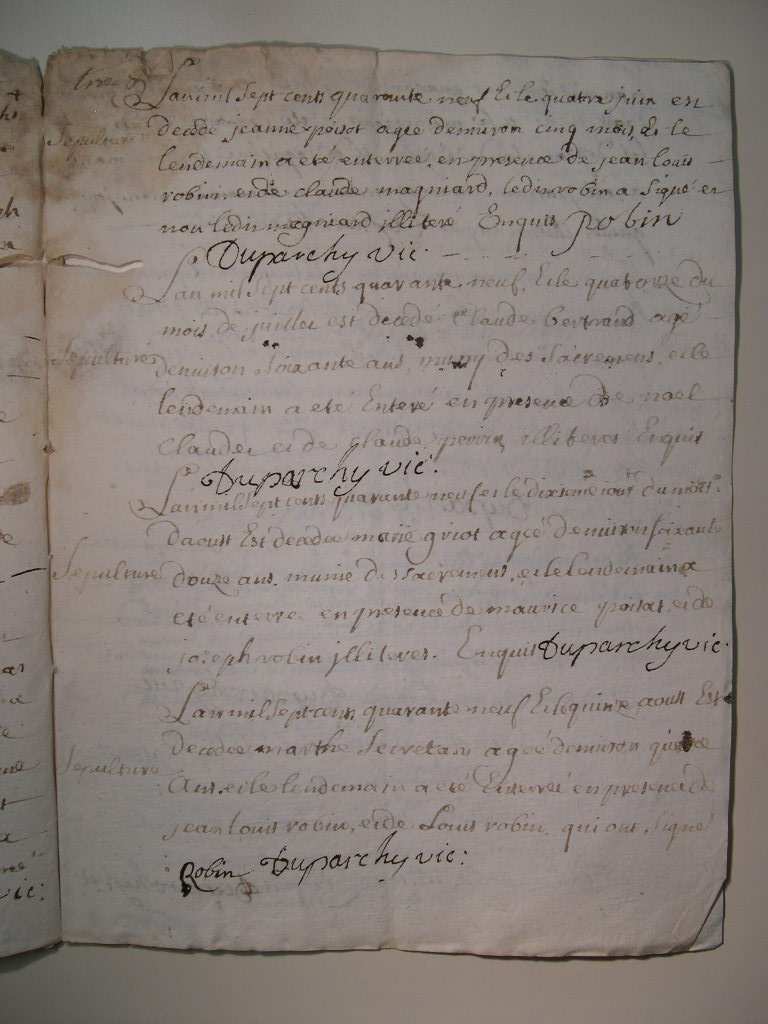 Lan mil Sept cents quarante neuf Et le quatre juin est
Sepulture
decedé jeanne poisot agée denuiron cinq mois, Et le
lendemain a eté enterrée, en presence de jean louis
robin, et de claude magniard, ledit robin a signé et
non ledit magniard jlliteré Enquis Robin
Duparchy vic.
Lan mil Sept cents quarante neuf, Et le quatorze du
mois de juillet est decedé Claude bertrand agé
Sepulture
denuiron soixante ans, muny des Sacremens, et le
lendemain a eté Enteré en presence de noel
Claudet et de Claude perrin illiteres Enquis
Duparchy vic.
Lan mil Sept cents quarante neuf et le dixieme jour du mois
daoust Est decedee marie griot agée denuiron soixante
Sepulture
douze ans. munie des Sacremens, et le lendemain a
eté enterree en presence de maurice poisat, et de
joseph robin jlliteres. Enquis Duparchy vic.
Lan mil Sept cents quarante neuf Et le quinze aoust Est
decedee marthe Secretan agée denuiron
Sepulture
Ans. et le lendemain a eté Enterreé en presence de
jean louis robin, et de Louis robin, qui ont signé
Robin Duparchy vic: